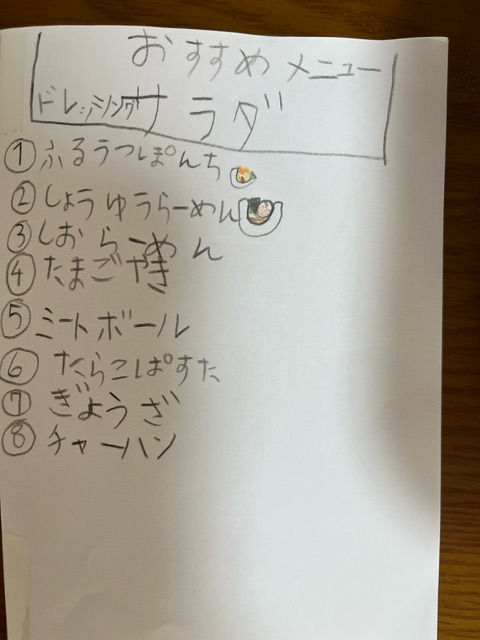 おすすめメニュー
ドレッシングサラダ
①ふるうつぽんち
②しょうゆうらーめん
③しおらーめん
④たまごやき
⑤ミートボール
⑥たらこぱすた
⑦ぎょうざ
⑧チャーハン